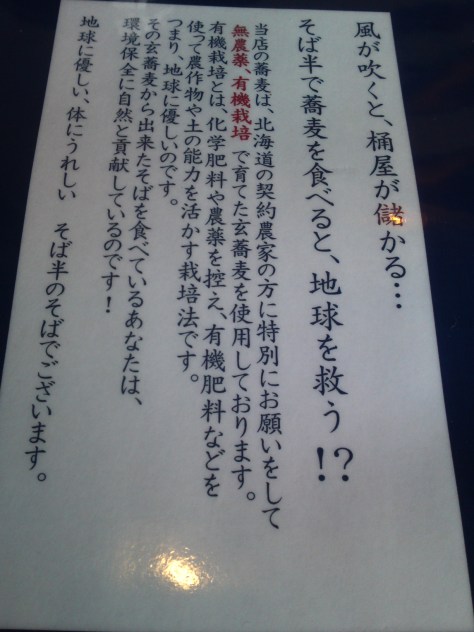 風が吹くと、桶屋が儲かる…
そば半で蕎麦を食べると、地球を救う!?
当店の蕎麦は、北海道の契約農家の方に特別にお願いをして
無農薬、有機栽培で育てた玄蕎麦を使用しております。
有機栽培とは、化学肥料や農薬を控え、有機肥料などを
使って農作物や土の能力を活かす栽培法です。
つまり、地球に優しいのです。
その玄蕎麦から出来たそばを食べているあなたは、
環境保全に自然と貢献しているのです!
地球に優しい、体にうれしい そば半のそばでございます。